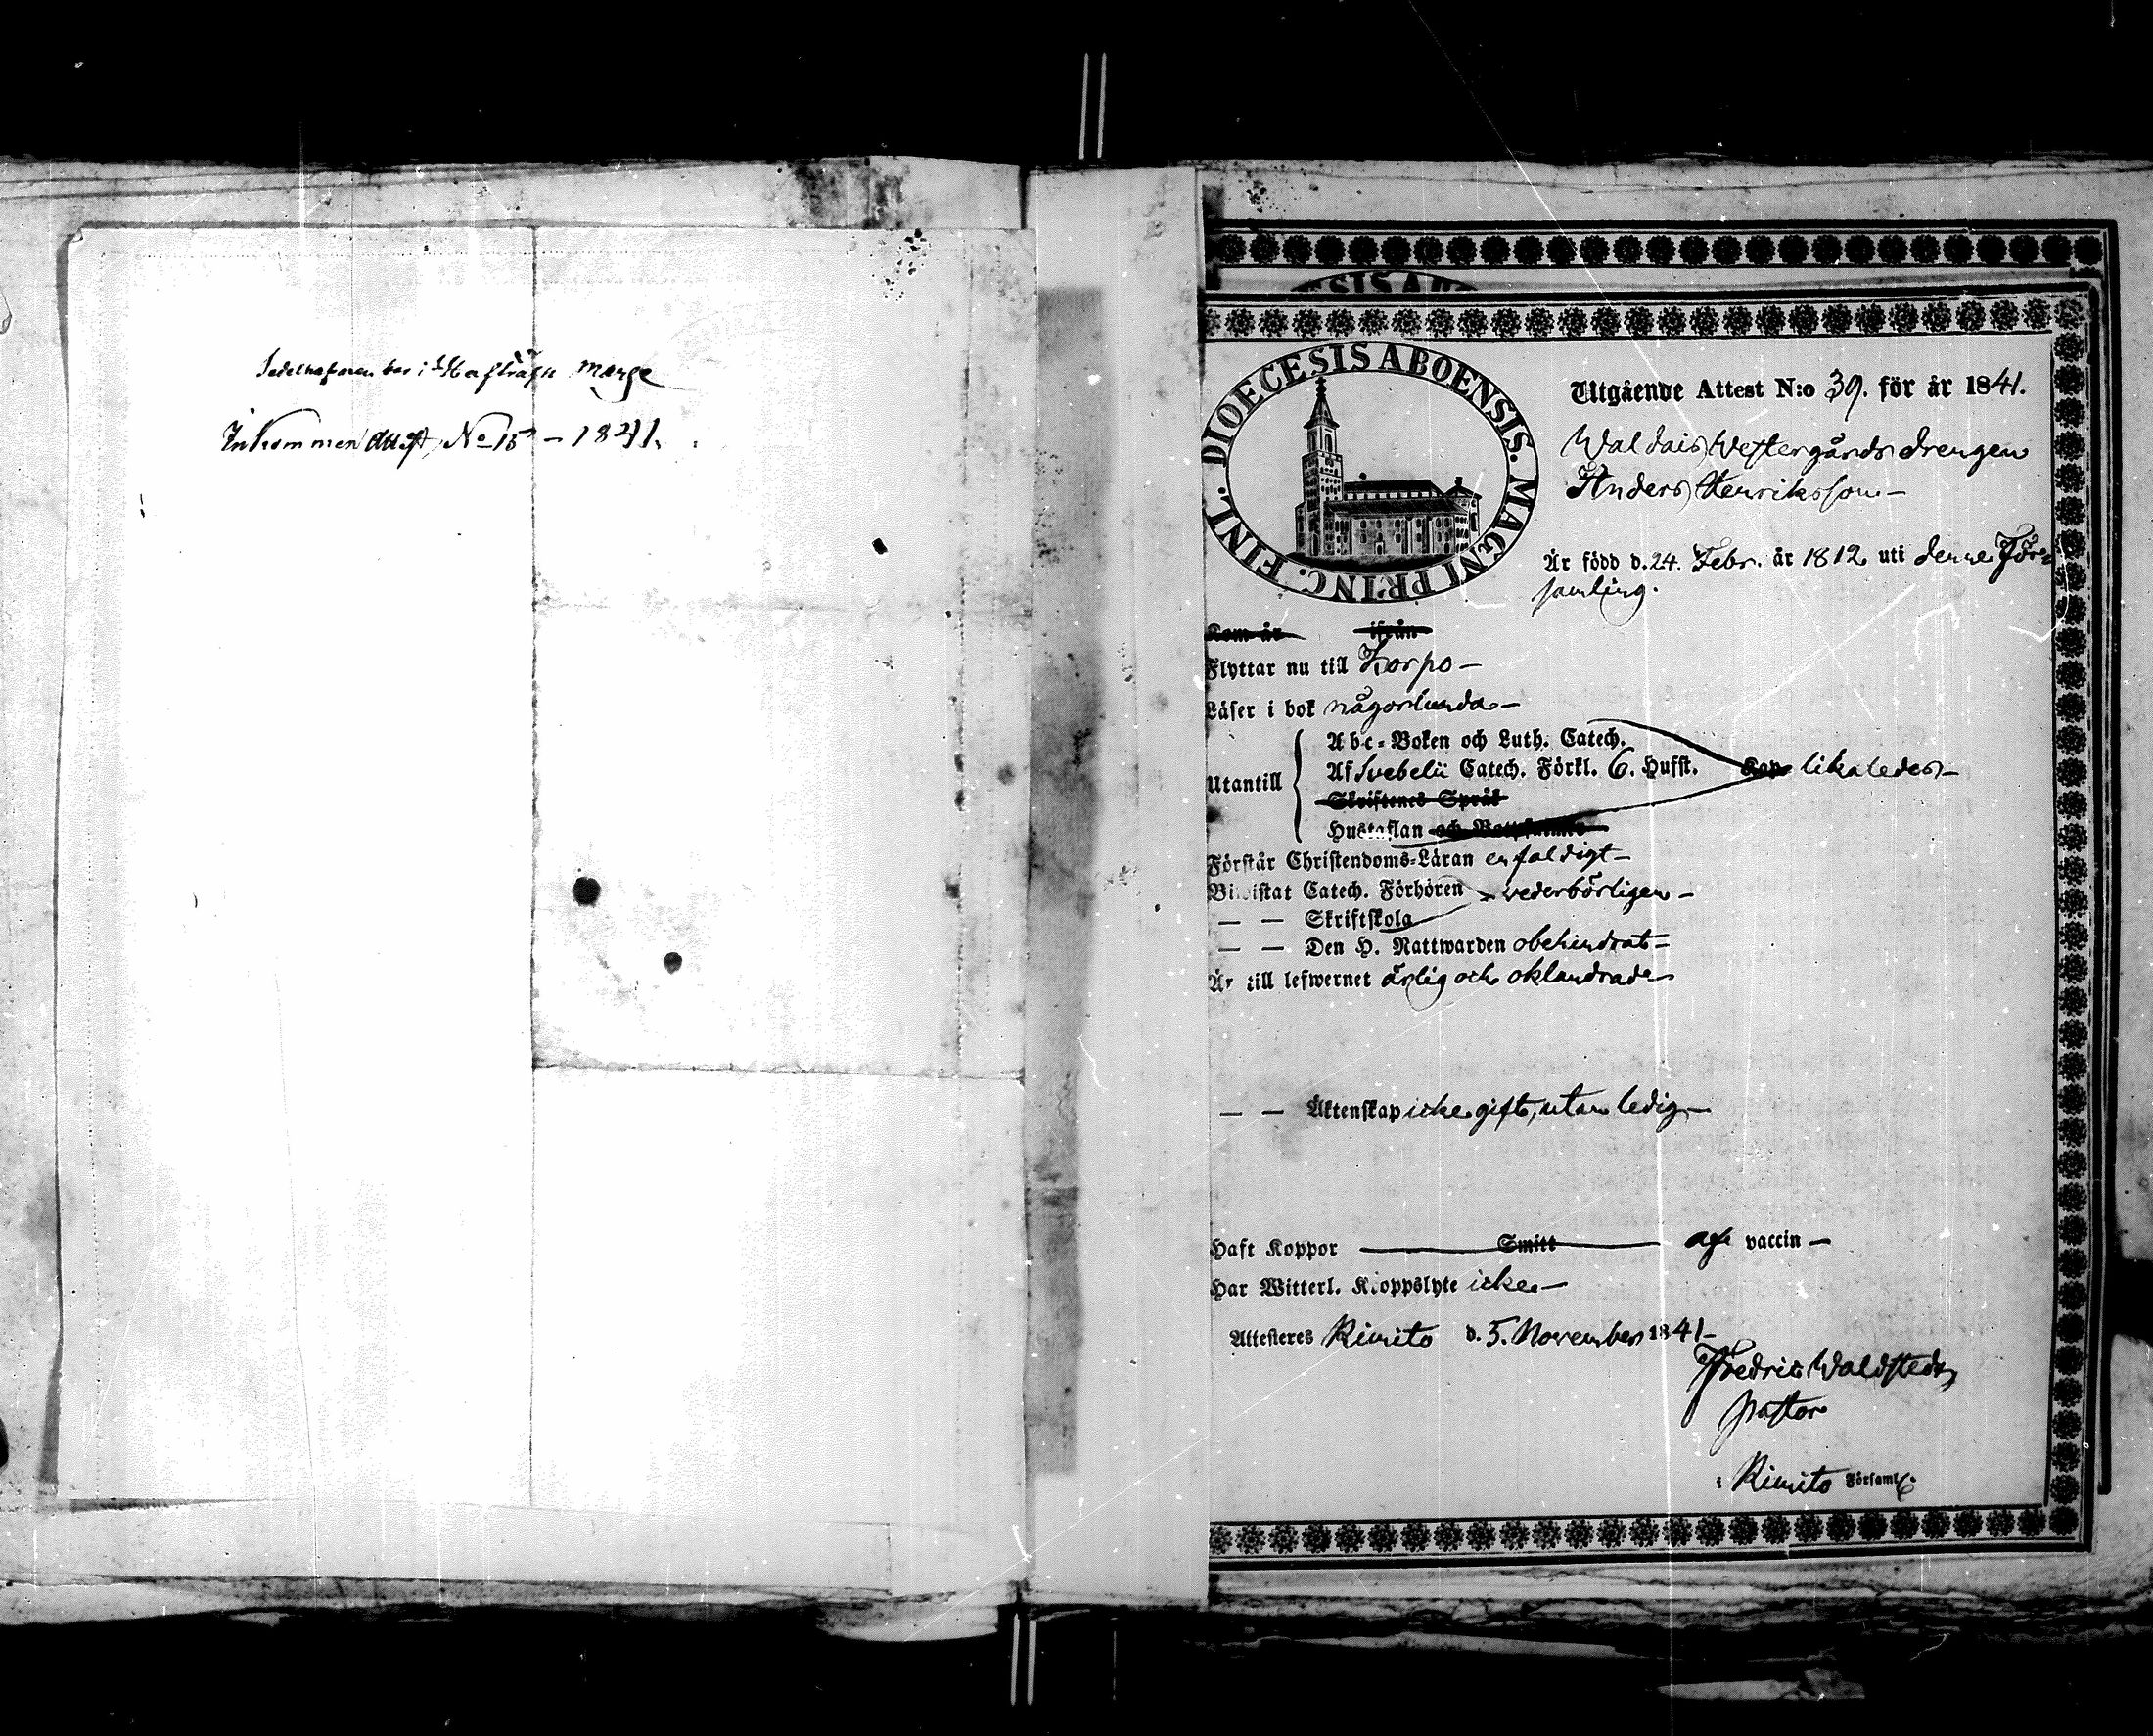 Sedelhafvaren bor i
Inkommen Attest No 15 - 1841.
ESIS ABO
DIOECESIS ABOENSIS. MAGNI PRINC. FINL.
Utgående Attest N:o 39. för år 1841.
Waldais Westergårds drengen
Anders Henriksson -
Är född d. 24. Febr. år 1812 uti denne För=
samling.
Kom år ifrån
Flyttar nu till Korpo -
Läser i bok någorlunda -
Abc-Boken och Luth. Catech.
Utantill Af Svebelii Catech. Förkl. 6. Hufst. likaledes -
Skriftenes Språk
Hustaflan och
Förstår Christendoms-Läran enfaldigt -
Bivistat Catech. Förhören vederbörligen -
— — Skriftskola
— — Den H. Nattwarden obehindrat -
Är till lefwernet ärlig och oklandrad -
— — Äktenskap icke gift, utan ledig -
Haft Koppor Smitt vaccin -
Har Witterl. Koppslyte icke -
Attesteres Kimito d. 5. November 1841 -
Fredric Waldstedt,
Pastor
i Kimito Församl.